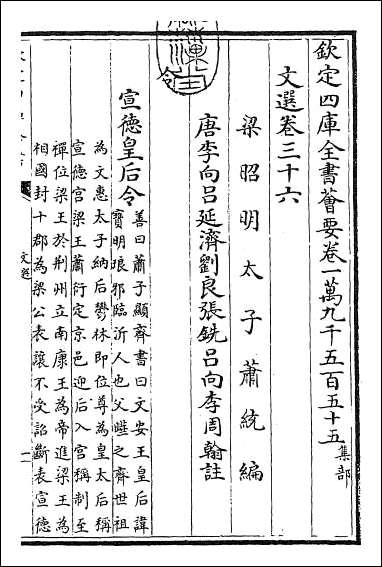 欽定四庫全書薈要卷一萬九千五百五十五 集部
文選卷三十六
梁昭明太子蕭統編
唐李向呂延濟劉良張銑呂向李周翰註
令
宣德皇后令
善曰蕭子顯齊書曰文安王皇后諱
寶明琅邪臨沂人也父曄之齊世祖
為文惠太子納后鬱林即位尊為皇太后稱
宣德宫梁王蕭衍定京邑迎后入宫稱制至
禪位梁王於荆州立南康王為帝進梁王為
相國封十郡為梁公表讓不受詔斷表宣德
文選
一